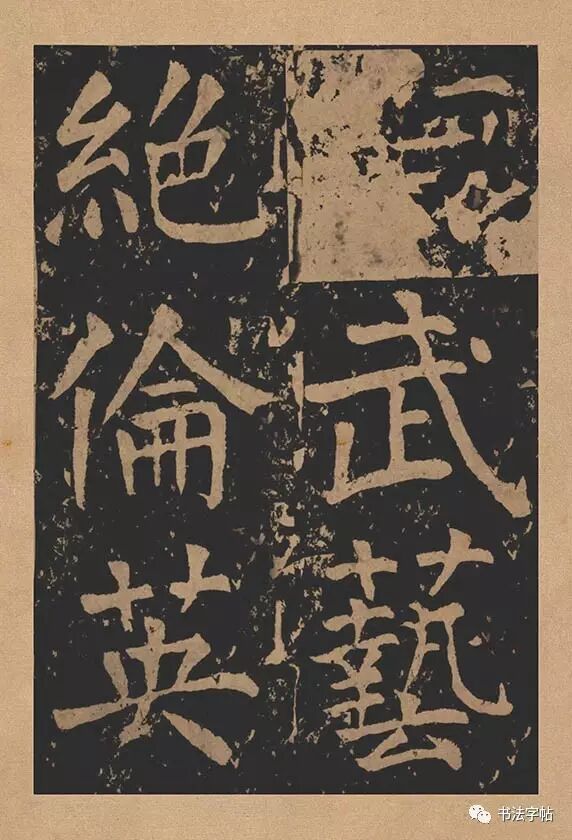 武藝
絕倫英
书法字帖